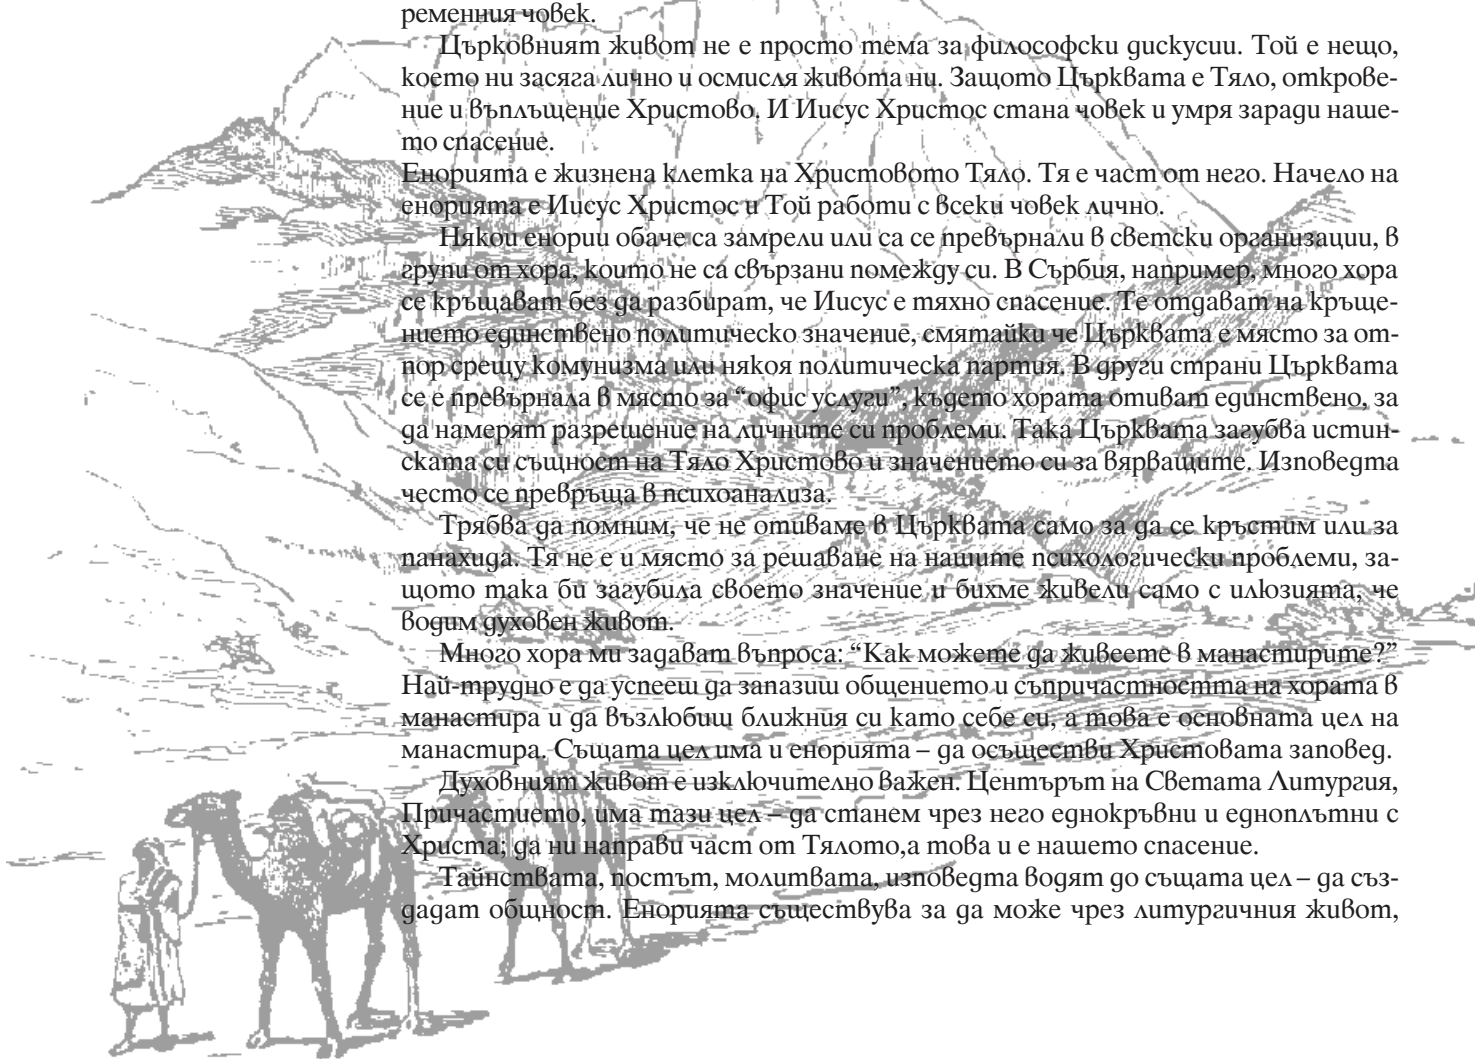 ременния човек.
Църковният живот не е просто тема за философски дискусии. Той е нещо,
което ни засяга лично и осмисля живота ни. Защото Църквата е Тяло, открове-
ние и въплъщение Христово. И Иисус Христос стана човек и умря заради наше-
то спасение.
Енорията е жизнена клетка на Христовото Тяло. Тя е част от него. Начело на
енорията е Иисус Христос и Той работи с всеки човек лично.
Някои енории обаче са замрели или са се превърнали в светски организации, в
групи от хора, които не са свързани помежду си. В Сърбия, например, много хора
се кръщават без да разбират, че Иисус е тяхно спасение. Те отдават на кръще-
нието единствено политическо значение, смятайки че Църквата е място за от-
пор срещу комунизма или някоя политическа партия. В други страни Църквата
се е превърнала в място за “офис услуги”, където хората отиват единствено, за
да намерят разрешение на личните си проблеми. Така Църквата загубва истин-
ската си същност на Тяло Христово и значението си за вярващите. Изповедта
често се превръща в психоанализа.
Трябва да помним, че не отиваме в Църквата само за да се кръстим или за
панахида. Тя не е и място за решаване на нашите психологически проблеми, за-
щото така би загубила своето значение и бихме живели само с илюзията, че
водим духовен живот.
Много хора ми задават въпроса: “Как можете да живеете в манастирите?”
Най-трудно е да успееш да запазиш общението и съпричастността на хората в
манастира и да възлюбиш ближния си като себе си, а това е основната цел на
манастира. Същата цел има и енорията – да осъществи Христовата заповед.
Духовният живот е изключително важен. Центърът на Светата Литургия,
Причастието, има тази цел – да станем чрез него еднокръвни и едноплътни с
Христа; да ни направи част от Тялото,а това и е нашето спасение.
Тайнствата, постът, молитвата, изповедта водят до същата цел – да съз-
дадат общност. Енорията съществува за да може чрез литургичния живот,